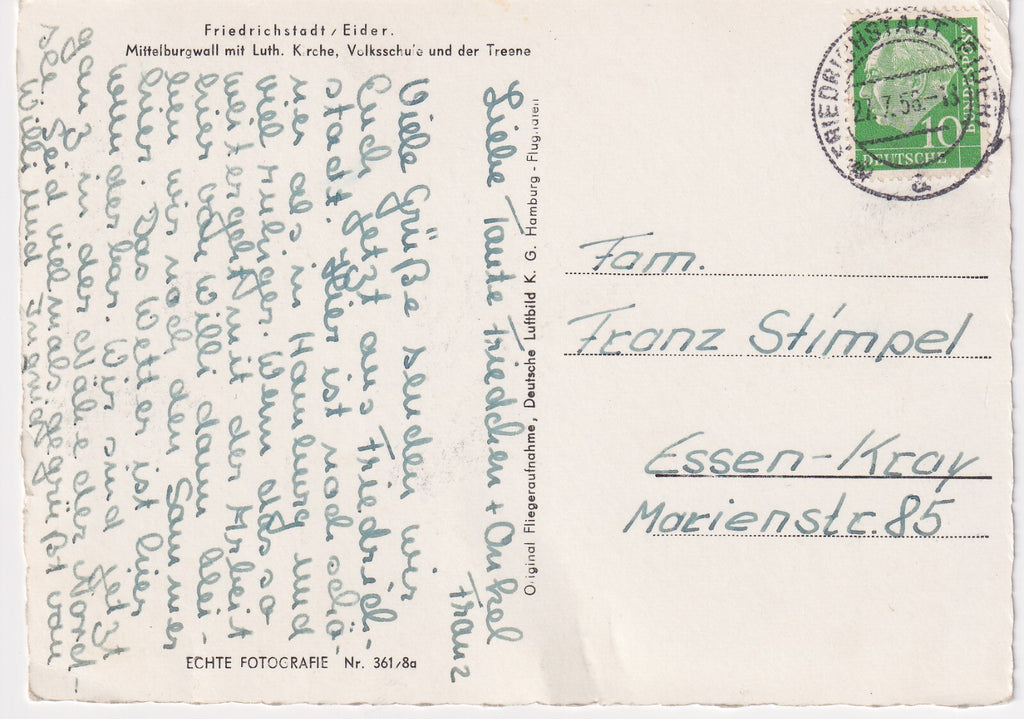 Friedrichstadt / Eider.
Mittelburgwall mit Luth. Kirche, Volksschule und der Treene
Liebe Tante Friedchen + Onkel
Franz
Viele Grüße senden wir
Euch jetzt aus Friedrich-
stadt. Hier ist noch schö-
ner als in Hamburg und
viel ruhiger. Wenn das so
weitergeht mit der Arbeit
hier von Willi dann blei-
ben wir noch den Sommer
hier. Das Wetter ist hier
wunderbar. Wir sind jetzt
ganz in der Nähe der Nord-
see. Seid vielmals gegrüßt von
Willi und
ECHTE FOTOGRAFIE Nr. 361/8a
Original Fliegeraufnahme, Deutsche Luftbild K. G. Hamburg - Flughafen
FRIEDRICHSTADT (EIDER)
27.7.56.-18
a
10
DEUTSCHE
BUNDESPOST
Fam.
Franz Stimpel
Essen-Kray
Marienstr. 85